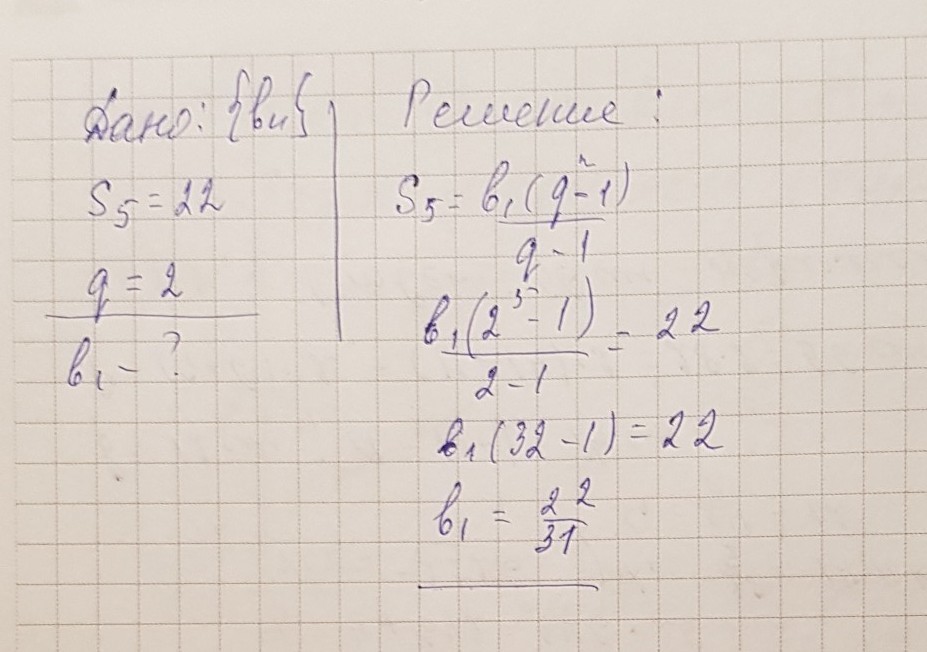 Дано: {bn}
S5 = 22
q = 2
b1 - ?
Решение:
S5 = b1(q^n - 1) / (q - 1)
b1(2^5 - 1) / (2 - 1) = 22
b1(32 - 1) = 22
b1 = 22/31